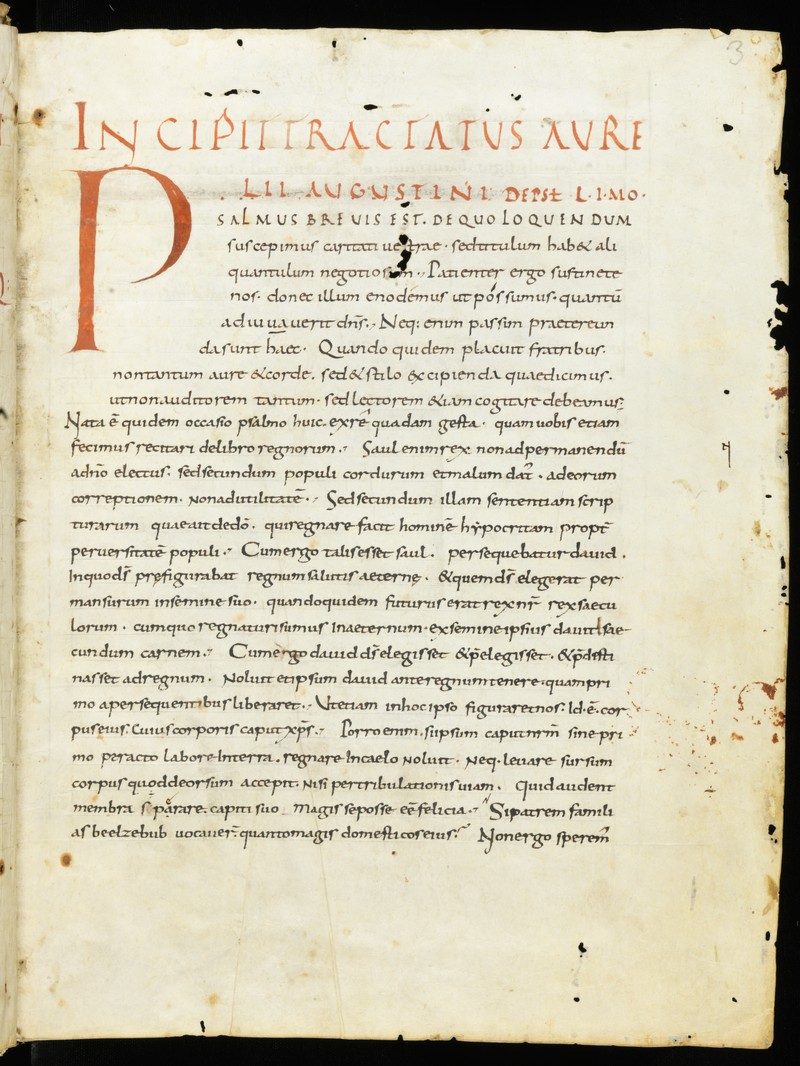 3
INCIPIT TRACTATUS AURE
LII AUGUSTINI DE PS̄ L.I.MO.
PSALMUS BREVIS EST. DE QUO LOQUENDUM
suscepimus caritati uestrae. sed titulum hab& ali
quantulum negotiosum. Patienter ergo sustinete
nos. donec illum enodemus ut possumus. quantū
adiuuauerit dn̄s. Neq: enim passim praetereun
da sunt haec. Quando quidem placuit fratribus.
non tantum aure & corde. sed & stilo excipienda quae dicimus.
ut non auditorem tantum. sed lectorem &iam cogitare debeamus.
Nata ē quidem occasio psalmo huic. ex rē quadam gesta. quam uobis etiam
fecimus recitari de libro regnorum. Saul enim rex non ad permanendū
a dn̄o electus. sed secundum populi cor durum et malum dat̄. ad eorum
correptionem. non ad utilitatē. Sed secundum illam sententiam scrip
turarum quae ait de dō. qui regnare facit hominē hypocritam propt̄
peruersitatē populi. Cum ergo talis esset saul. persequebatur dauid.
In quo ds̄ pręfigurabat regnum salutis aeternę. & quem ds̄ elegerat per
mansurum in semine suo. quandoquidem futurus erat rex nr̄ rex saecu
lorum. cum quo regnaturi sumus in aeternum. ex semine ipsius dauid sae
cundum carnem. Cum ergo dauid ds̄ elegisset & p̄elegisset. & p̄desti
nasset ad regnum. Noluit et ipsum dauid ante regnum tenere. quam pri
mo a persequentibus liberaret. Ut etiam in hoc ipso figuraret nos. Id. ē. cor
pus eius. Cuius corporis caput xp̄s. Porro enim. si ipsum caput nrm̄ sine pri
mo peracto labore in terra. regnare in caelo noluit. Neq. leuare sursum
corpus quod deorsum accepit. Nisi per tribulationis uiam. Quid audent
membra sperare. capiti suo magis se posse eē felicia. Si patrem famili
as beelzebub uocauer̄. quanto magis domesticos eius. Non ergo sperem̄